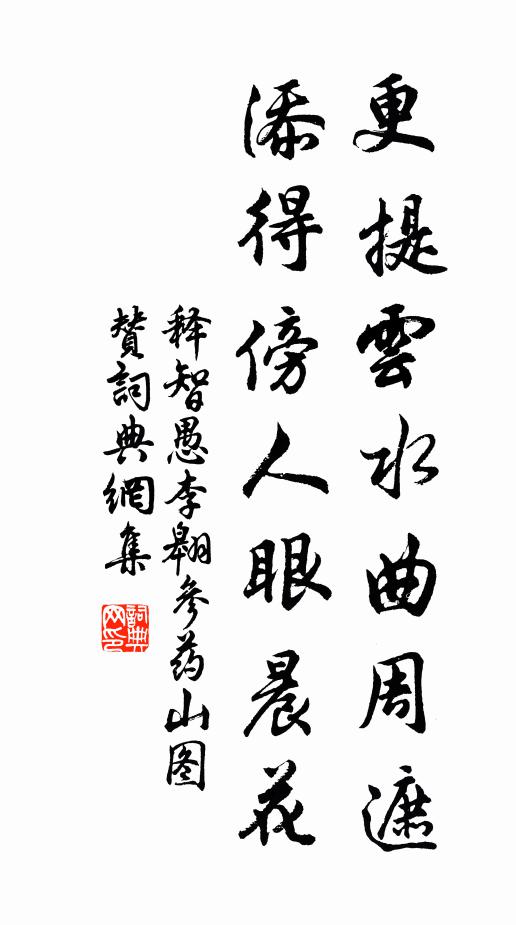 更提雲水曲周遮
添得傍人眼晨花
释智愚李翱參药山图
贊詞典網集
詞典
网印